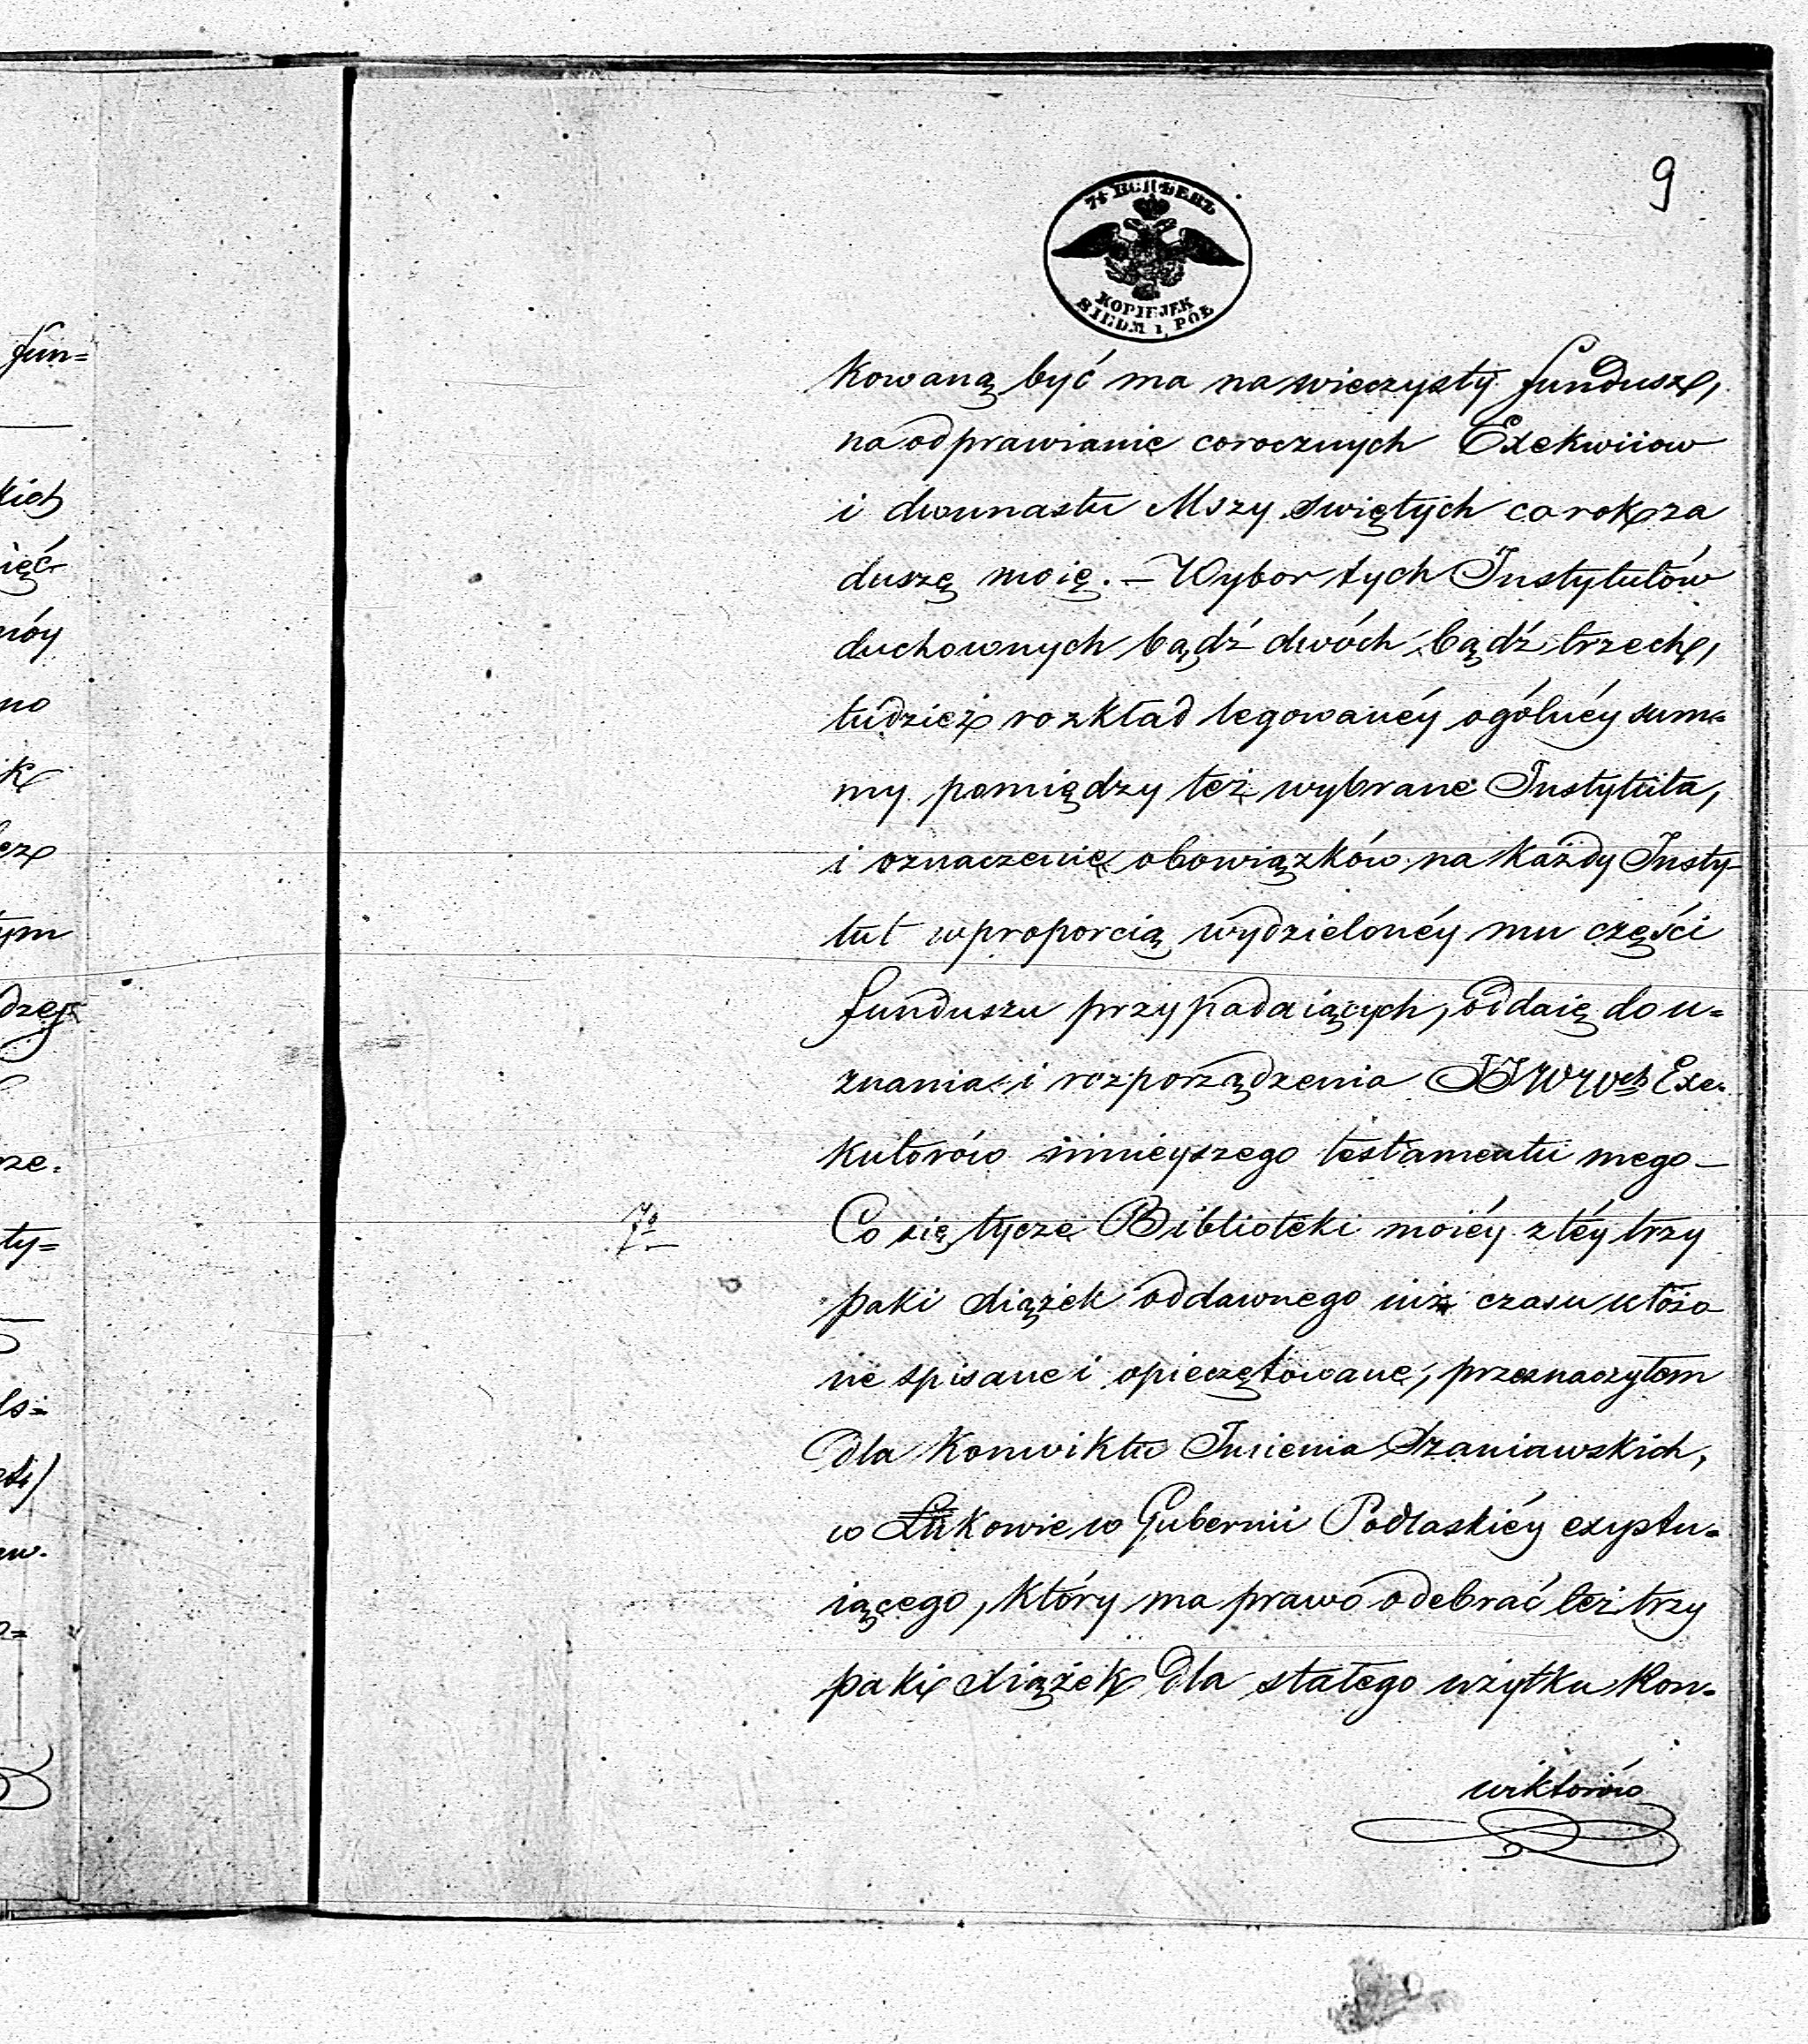 9
7½ КОПѢЕКЪ
KOPIEJEK
SIEDM i POŁ
kowaną być ma na wieczysty fundusz,
na odprawianie corocznych Exekwiiow
i dwunastu Mszy swiętych co rok za
duszę moię. – Wybor tych Instytutów
duchownych bądź dwóch bądź trzech,
tudzież rozkład legowanéy ogólnéy sum=
my pomiędzy też wybrane Instytuta,
i oznaczenie obowiązków na każdy Insty-
tut w proporcią wydzielonéy mu części
funduszu przypadaiących, oddaię do u=
znania i rozporządzenia JJWWch Exe-
kutorów ninieyszego testamentu mego –
7o Co się tycze Biblioteki moiéy z téy trzy
paki xiążek oddawnego iuż czasu ułożo
ne spisane i opieczętowane, przeznaczyłem
dla Konwiktu Imienia Szaniawskich,
w Łukowie w Gubernii Podlaskiéy exystu=
iącego, który ma prawo odebrać też trzy
paki xiążek dla stałego użytku Kon=
wiktorów
fun=
kich
ięć
móy
no
ik
ym
dzey
rze.
ty=
ls=